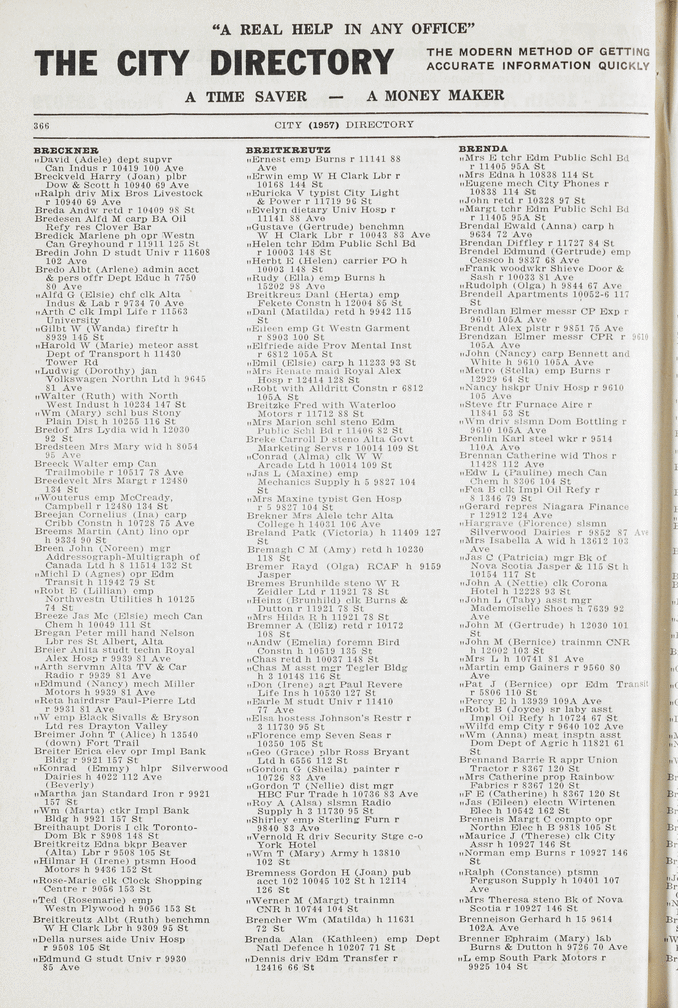 “A REAL HELP IN ANY OFFICE”
THE CITY DIRECTORY
THE MODERN METHOD OF GETTING
ACCURATE INFORMATION QUICKLY
A TIME SAVER — A MONEY MAKER
366
CITY (1957) DIRECTORY
BRECKNER
"David (Adele) dept supvr
Can Indus r 10419 100 Ave
Breckveld Harry (Joan) plbr
Dow & Scott h 10940 69 Ave
"Ralph driv Mix Bros Livestock
r 10940 69 Ave
Breda Andw retd r 10409 98 St
Bredesen Alfd M carp BA Oil
Refy res Clover Bar
Bredick Marlene ph opr Westn
Can Greyhound r 11911 125 St
Bredin John D studt Univ r 11608
102 Ave
Bredo Albt (Arlene) admin acct
& pers offr Dept Educ h 7750
80 Ave
"Alfd G (Elsie) chf clk Alta
Indus & Lab r 9734 70 Ave
"Arth C clk Impl Life r 11563
University
"Gilbt W (Wanda) fireftr h
8939 145 St
"Harold W (Marie) meteor asst
Dept of Transport h 11430
Tower Rd
"Ludwig (Dorothy) jan
Volkswagen Northn Ltd h 9645
81 Ave
"Walter (Ruth) with North
West Indust h 10234 147 St
"Wm (Mary) schl bus Stony
Plain Dist h 10255 116 St
Bredof Mrs Lydia wid h 12030
92 St
Bredsteen Mrs Mary wid h 8054
95 Ave
Breeck Walter emp Can
Trailmobile r 10517 78 Ave
Breedevelt Mrs Margt r 12480
134 St
"Wouterus emp McCready,
Campbell r 12480 134 St
Breejan Cornelius (Ina) carp
Cribb Constn h 10728 75 Ave
Breems Martin (Ant) lino opr
h 9334 90 St
Breen John (Noreen) mgr
Addressograph-Multigraph of
Canada Ltd h 8 11514 132 St
"Michl D (Agnes) opr Edm
Transit h 11942 79 St
"Robt E (Lillian) emp
Northwestn Utilities h 10125
74 St
Breeze Jas Mc (Elsie) mech Can
Chem h 10049 111 St
Bregan Peter mill hand Nelson
Lbr res St Albert, Alta
Breier Anita studt techn Royal
Alex Hosp r 9939 81 Ave
"Arth servmn Alta TV & Car
Radio r 9939 81 Ave
"Edmund (Nancy) mech Miller
Motors h 9939 81 Ave
"Reta hairdrsr Paul-Pierre Ltd
r 9931 81 Ave
"W emp Black Sivalls & Bryson
Ltd res Drayton Valley
Breimer John T (Alice) h 13540
(down) Fort Trail
Breiter Erica elev opr Impl Bank
Bldg r 9921 157 St
"Konrad (Emmy) hlpr Silverwood
Dairies h 4022 112 Ave
(Beverly)
"Martha jan Standard Iron r 9921
157 St
"Wm (Marta) ctkr Impl Bank
Bldg h 9921 157 St
Breithaupt Doris I clk Toronto-
Dom Bk r 8908 148 St
Breitkreitz Edna bkpr Beaver
(Alta) Lbr r 9508 105 St
"Hilmar H (Irene) ptsmn Hood
Motors h 9436 152 St
"Rose-Marie clk Clock Shopping
Centre r 9056 153 St
"Ted (Rosemarie) emp
Westn Plywood h 9056 153 St
Breitkreutz Albt (Ruth) benchmn
W H Clark Lbr h 9309 95 St
"Della nurses aide Univ Hosp
r 9508 105 St
"Edmund G studt Univ r 9930
85 Ave
BREITKREUTZ
"Ernest emp Burns r 11141 88
Ave
"Erwin emp W H Clark Lbr r
10168 144 St
"Euricka V typist City Light
& Power r 11719 96 St
"Evelyn dietary Univ Hosp r
11141 88 Ave
"Gustave (Gertrude) benchmn
W H Clark Lbr r 10043 83 Ave
"Helen tchr Edm Public Schl Bd
r 10003 148 St
"Herbt E (Helen) carrier PO h
10003 148 St
"Rudy (Ella) emp Burns h
15202 98 Ave
Breitkreuz Danl (Herta) emp
Fekete Constn h 12004 85 St
"Danl (Matilda) retd h 9942 115
St
"Eileen emp Gt Westn Garment
r 8903 100 St
"Elfriede aide Prov Mental Inst
r 6812 105A St
"Emil (Elsie) carp h 11233 93 St
"Mrs Renate maid Royal Alex
Hosp r 12414 128 St
"Robt with Alldritt Constn r 6812
105A St
Breitzke Fred with Waterloo
Motors r 11712 88 St
"Mrs Marion schl steno Edm
Public Schl Bd r 11406 82 St
Breke Carroll D steno Alta Govt
Marketing Servs r 10014 109 St
"Conrad (Alma) clk W W
Arcade Ltd h 10014 109 St
"Jas L (Maxine) emp
Mechanics Supply h 5 9827 104
St
"Mrs Maxine typist Gen Hosp
r 5 9827 104 St
Brekner Mrs Alele tchr Alta
College h 14031 106 Ave
Breland Patk (Victoria) h 11409 127
St
Bremagh C M (Amy) retd h 10230
118 St
Bremer Rayd (Olga) RCAF h 9159
Jasper
Bremes Brunhilde steno W R
Zeidler Ltd r 11921 78 St
"Heinz (Brunhild) clk Burns &
Dutton r 11921 78 St
"Mrs Hilda R h 11921 78 St
Bremner A (Eliz) retd r 10172
108 St
"Andw (Emelia) foremn Bird
Constn h 10519 135 St
"Chas retd h 10037 148 St
"Chas M asst mgr Tegler Bldg
h 3 10148 116 St
"Don (Irene) agt Paul Revere
Life Ins h 10530 127 St
"Earle M studt Univ r 11410
77 Ave
"Elsa hostess Johnson's Restr r
3 11730 95 St
"Florence emp Seven Seas r
10350 105 St
"Geo (Grace) plbr Ross Bryant
Ltd h 6556 112 St
"Gordon G (Sheila) painter r
10726 83 Ave
"Gordon T (Nellie) dist mgr
HBC Fur Trade h 10736 83 Ave
"Roy A (Alsa) slsmn Radio
Supply h 3 11730 95 St
"Shirley emp Sterling Furn r
9840 83 Ave
"Vernold R driv Security Stge c-o
York Hotel
"Wm T (Mary) Army h 13810
102 St
Bremness Gordon H (Joan) pub
acct 102 10045 102 St h 12114
126 St
"Werner M (Margt) trainmn
CNR h 10744 104 St
Brencher Wm (Matilda) h 11631
72 St
Brenda Alan (Kathleen) emp Dept
Natl Defence h 10207 71 St
"Dennis driv Edm Transfer r
12416 66 St
BRENDA
"Mrs E tchr Edm Public Schl Bd
r 11405 95A St
"Mrs Edna h 10838 114 St
"Eugene mech City Phones r
10838 114 St
"John retd r 10328 97 St
"Margt tchr Edm Public Schl Bd
r 11405 95A St
Brendal Ewald (Anna) carp h
9634 72 Ave
Brendan Diffley r 11727 84 St
Brendel Edmund (Gertrude) emp
Cessco h 9837 68 Ave
"Frank woodwkr Shieve Door &
Sash r 10033 81 Ave
"Rudolph (Olga) h 9844 67 Ave
Brendell Apartments 10052-6 117
St
Brendlan Elmer messr CP Exp r
9610 105A Ave
Brendt Alex plstr r 9851 75 Ave
Brendzan Elmer messr CPR r 9610
105A Ave
"John (Nancy) carp Bennett and
White h 9610 105A Ave
"Metro (Stella) emp Burns r
12929 64 St
"Nancy hskpr Univ Hosp r 9610
105 Ave
"Steve ftr Furnace Aire r
11841 53 St
"Wm driv slsmn Dom Bottling r
9610 105A Ave
Brenlin Karl steel wkr r 9514
110A Ave
Brennan Catherine wid Thos r
11428 112 Ave
"Edw L (Pauline) mech Can
Chem h 8306 104 St
"Fea B clk Impl Oil Refy r
8 1346 79 St
"Gerard repres Niagara Finance
r 12912 124 Ave
"Hargrave (Florence) slsmn
Silverwood Dairies r 9952 87 Ave
"Mrs Isabella A wid h 13612 103
Ave
"Jas C (Patricia) mgr Bk of
Nova Scotia Jasper & 115 St h
10154 117 St
"John A (Nettie) clk Corona
Hotel h 12228 93 St
"John L (Taby) asst mgr
Mademoiselle Shoes h 7639 92
Ave
"John M (Gertrude) h 12030 101
St
"John M (Bernice) trainmn CNR
h 12002 103 St
"Mrs L h 10741 81 Ave
"Martin emp Gainers r 9560 80
Ave
"Pat J (Bernice) opr Edm Transit
r 5806 110 St
"Percy E h 13939 109A Ave
"Robt B (Joyce) sr laby asst
Impl Oil Refy h 10724 67 St
"Wilfd emp City r 9640 102 Ave
"Wm (Anna) meat insptn asst
Dom Dept of Agric h 11821 61
St
Brennand Barrie R appr Union
Tractor r 8367 120 St
"Mrs Catherine prop Rainbow
Fabrics r 8367 120 St
"F E (Catherine) h 8367 120 St
"Jas (Eileen) electn Wirtenen
Elec h 10542 162 St
Brenneis Margt C compto opr
Northn Elec h B 9818 105 St
"Maurice J (Therese) clk City
Assr h 10927 146 St
"Norman emp Burns r 10927 146
St
"Ralph (Constance) ptsmn
Ferguson Supply h 10401 107
Ave
"Mrs Theresa steno Bk of Nova
Scotia r 10927 146 St
Brenneison Gerhard h 15 9614
102A Ave
Brenner Ephraim (Mary) lab
Burns & Dutton h 9726 70 Ave
"L emp South Park Motors r
9925 104 St